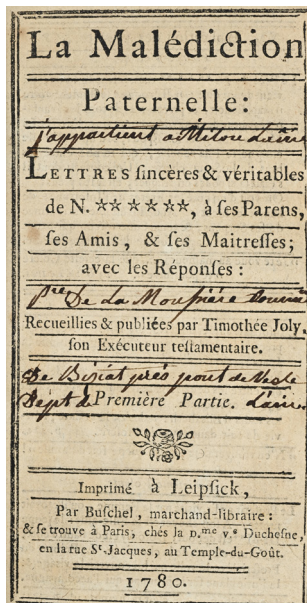 La Malédiction
Paternelle:
j'appartient a Milou
LETTRES sincères & véritables
de N. ☆☆☆☆☆☆, à ses Parens,
ses Amis, & ses Maitresses;
avec les Réponses :
De La
Recueillies & publiées par Timothée Joly,
son Exécuteur testamentaire.
De Biziat près pont de Vesle
Dept de Première Partie. L'ain
Imprimé à Leipsick,
Par Buschel, marchand-libraire :
& se trouve à Paris, chés la D.me v.e Duchesne,
en la rue St Jacques, au Temple-du-Goût.
1780.